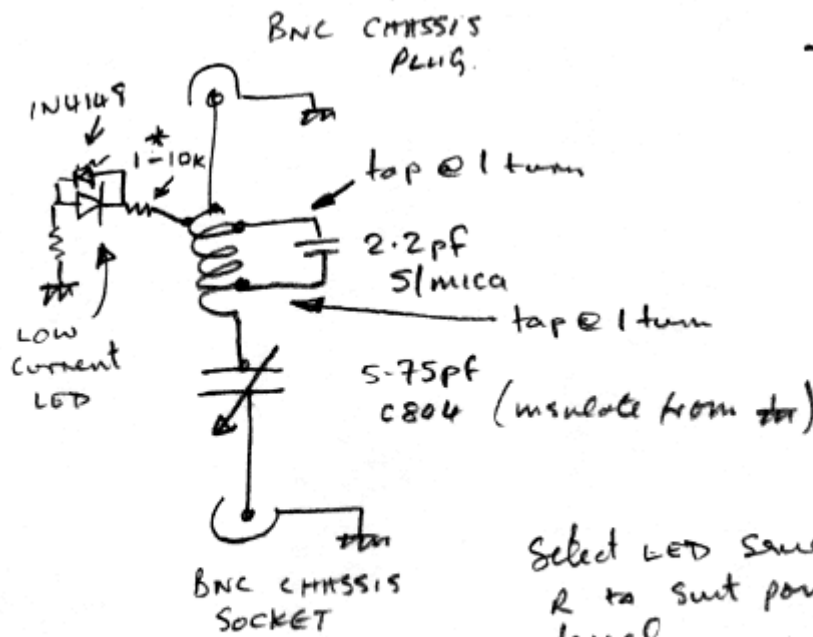 BNC CHASSIS
PLUG.
1N4149
*
1-10K
tap @ 1 turn
2.2pf
S/mica
tap @ 1 turn
LOW
Current
LED
5-75pf
C804 (insulate from
BNC CHASSIS
SOCKET
Select LED
R to suit
level